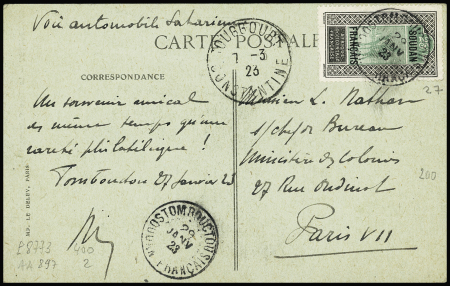 Voie automobile Saharienne
CARTE POSTALE
TOUGGOURT
7 -3
23
CONSTANTINE
SOUDAN
FRANÇAIS
TOMBOUCTOU
29
JANV
23
CORRESPONDANCE
Un souvenir amical
en même temps qu'une
rareté philatélique !
Tombouctou 27 Janvier 23
Monsieur L. Nathan
s/chef de Bureau
Ministère des Colonies
27 Rue Oudinot
Paris VII
27
200
TOMBOUCTOU
29
JANV
23
SOUDAN FRANÇAIS
P.8773
AA 897
400
2
ED. LE DELEY, PARIS